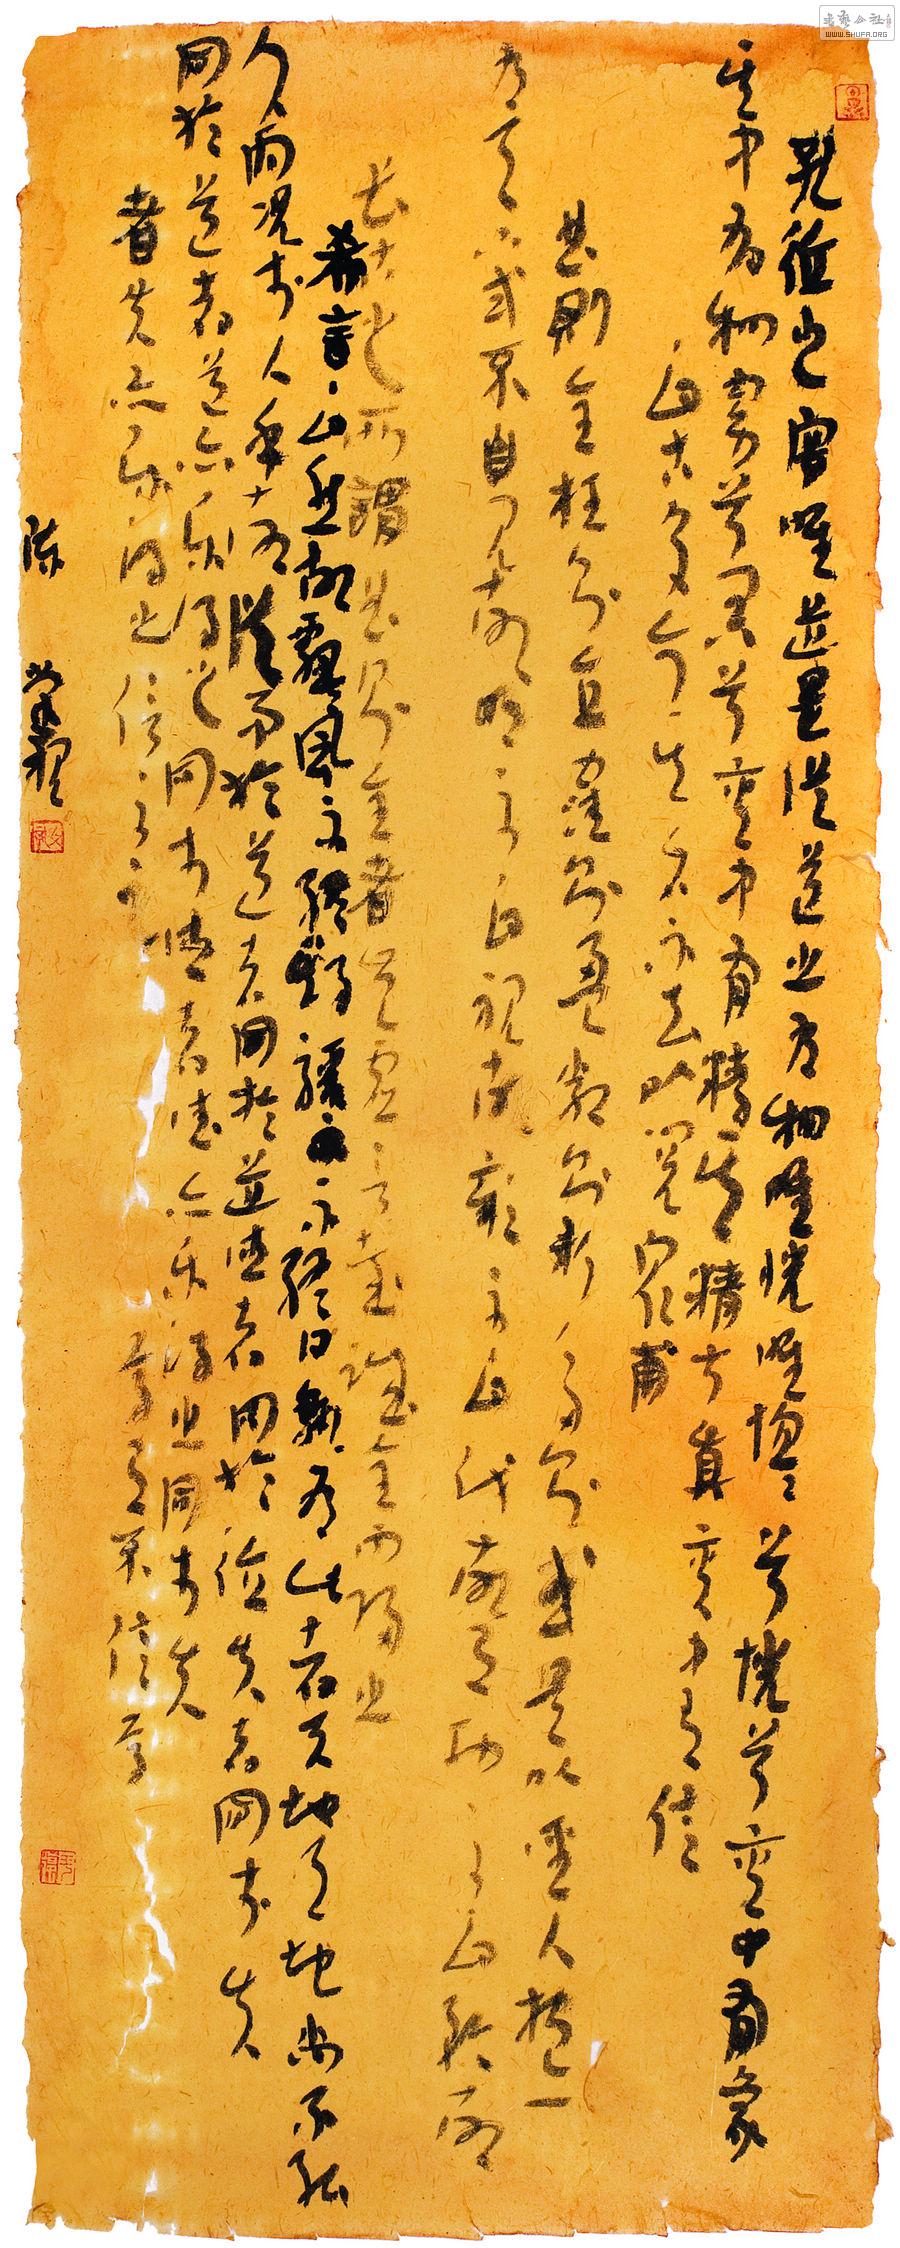 孔德之容唯道是從道之為物唯恍唯惚惚兮恍兮其中有象
其中有物窈兮冥兮其中有精其精甚真其中有信
自古及今其名不去以閱衆甫
曲則全枉則直窪則盈敝則新多則惑是以聖人抱一
為天下式不自見故明不自視故彰不自伐故有功不自矜故
長古之所謂曲則全者豈虛言哉誠全而歸之
希言自然故飄風不終朝驟雨不終日孰為此者天地天地尚不能
久而況於人乎故從而於道者同於道德者同於德失者同於失
同於道者道亦樂得之同於德者德亦樂得之同於失
者失亦樂得之信不足焉有不信焉
陳
WWW.SHUFA.ORG